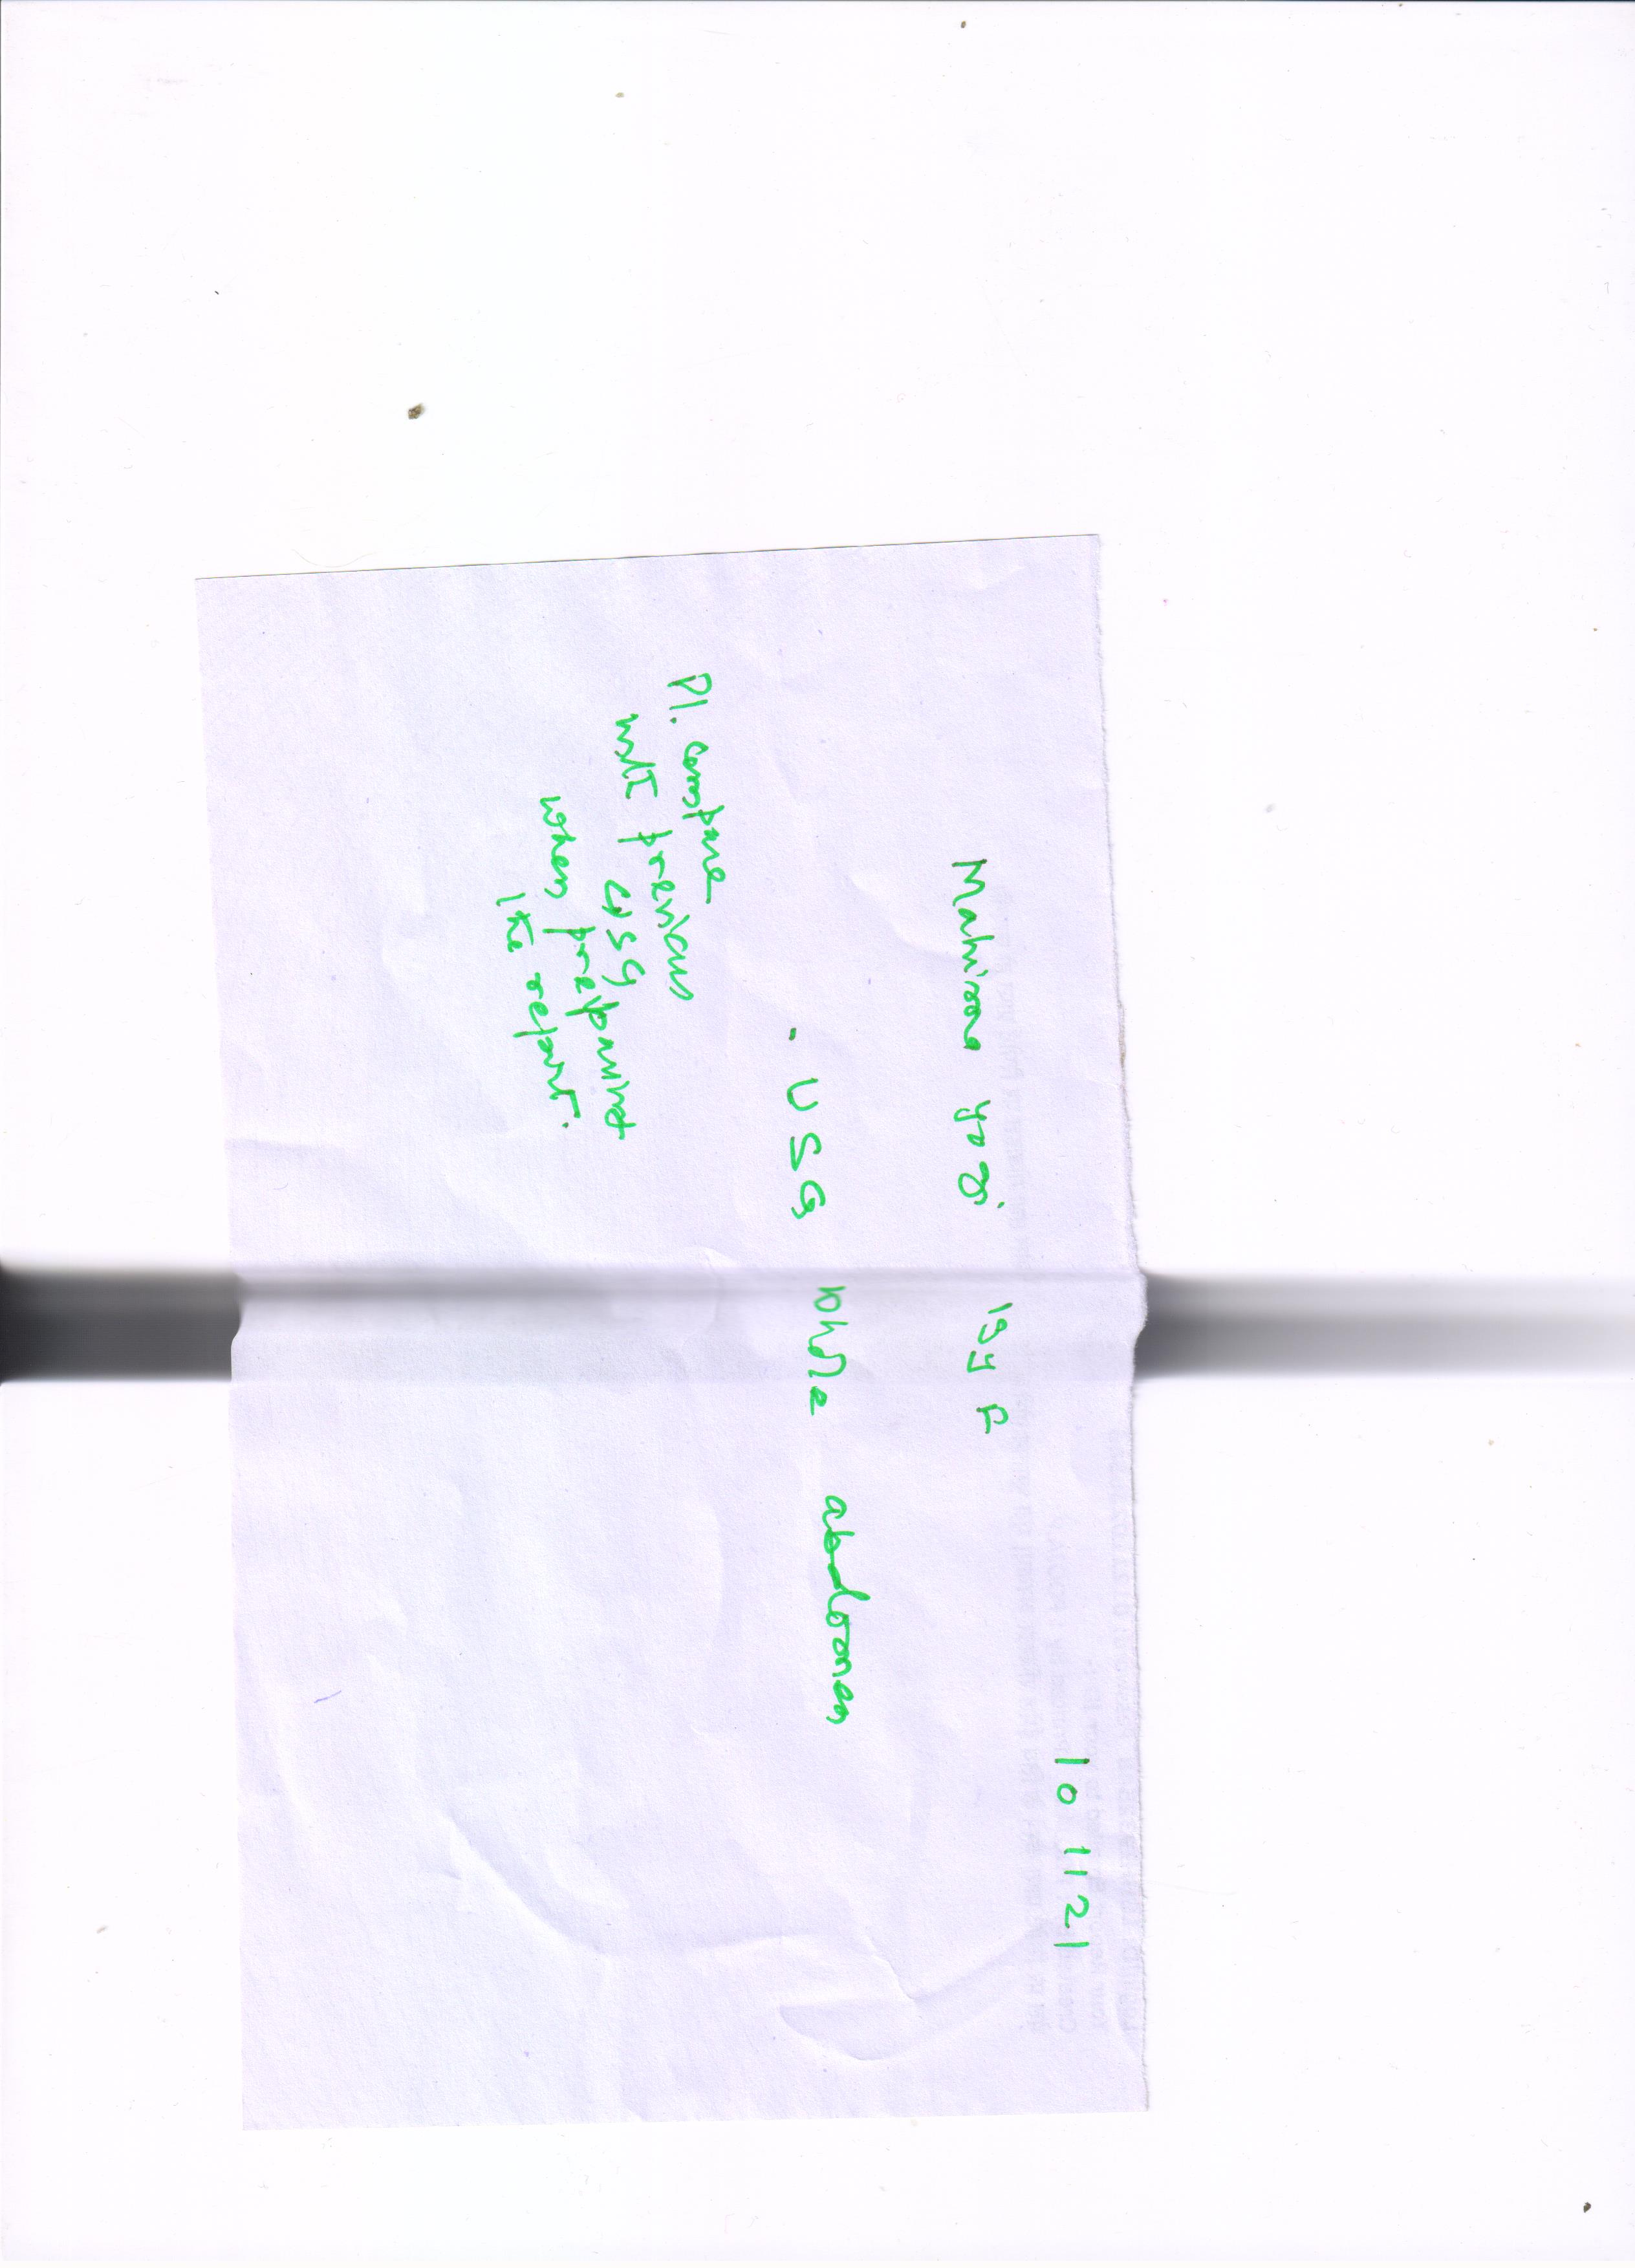 10 11 21
Mahima 19y F
. USG whole abdomen
Pl. compare
with previous
USG
when preparing
the report.